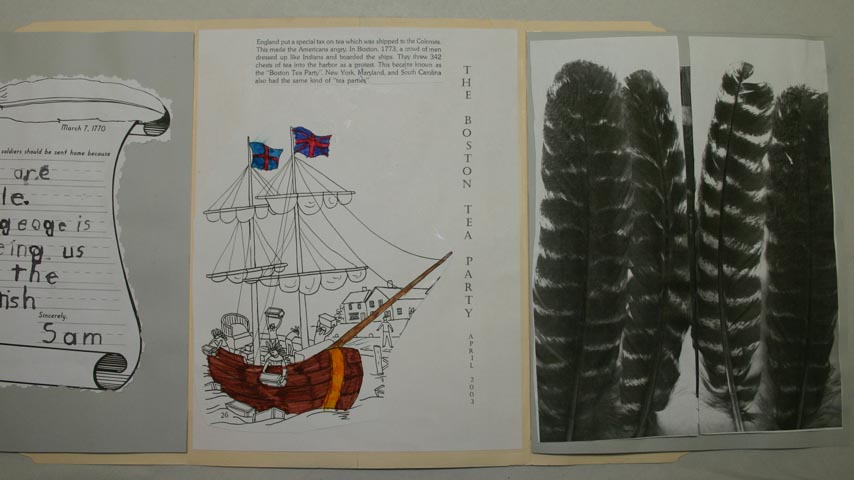 March 7, 1770
soldiers should be sent home because
are
le.
geoge is
eing us
the
tish
Sincerely,
Sam
England put a special tax on tea which was shipped to the Colonies.
This made the Americans angry. In Boston, 1773, a crowd of men
dressed up like Indians and boarded the ships. They threw 342
chests of tea into the harbor as a protest. This became known as
the "Boston Tea Party". New York, Maryland, and South Carolina
also had the same kind of "tea parties"
THE BOSTON TEA PARTY APRIL 2003
26